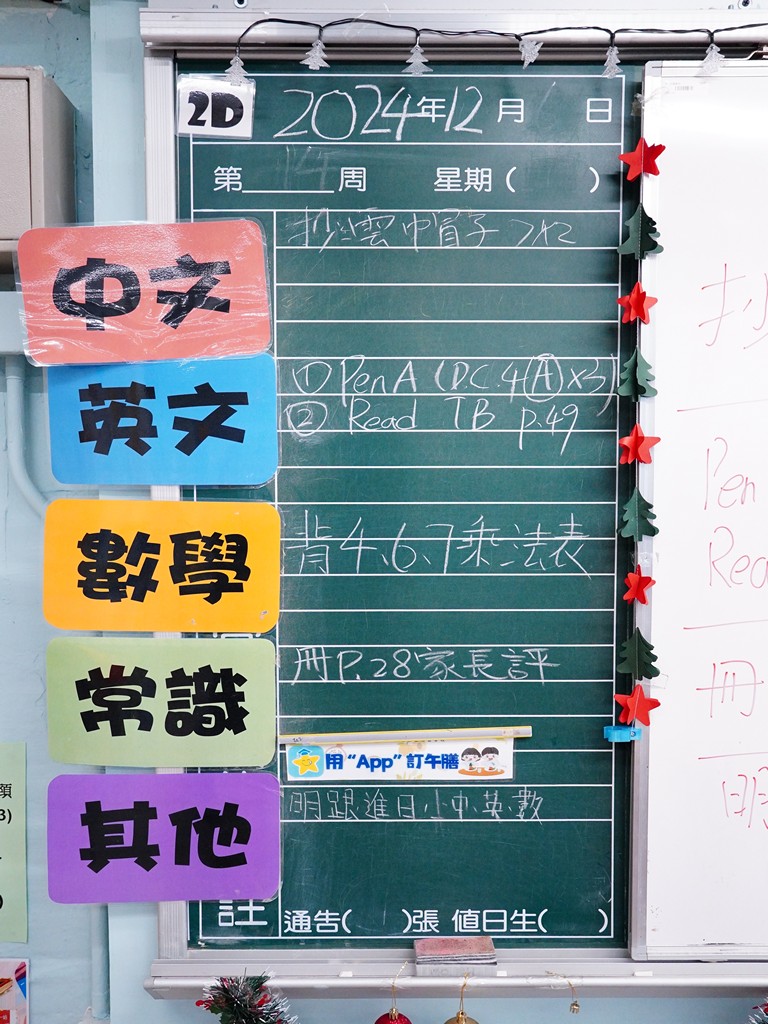 2D
2024年12月 日
第 14 周 星期( )
中文
抄雲中冒子 7x2
英文
① Pen A (D.C. 4(A)x3)
② Read TB p.49
數學
背4、6、7乘法表
常識
冊P.28家長評
用“App”訂午膳
其他
明跟進日小中、英、數
註
通告( )張 值日生( )
抄
Pen
Rea
冊
明